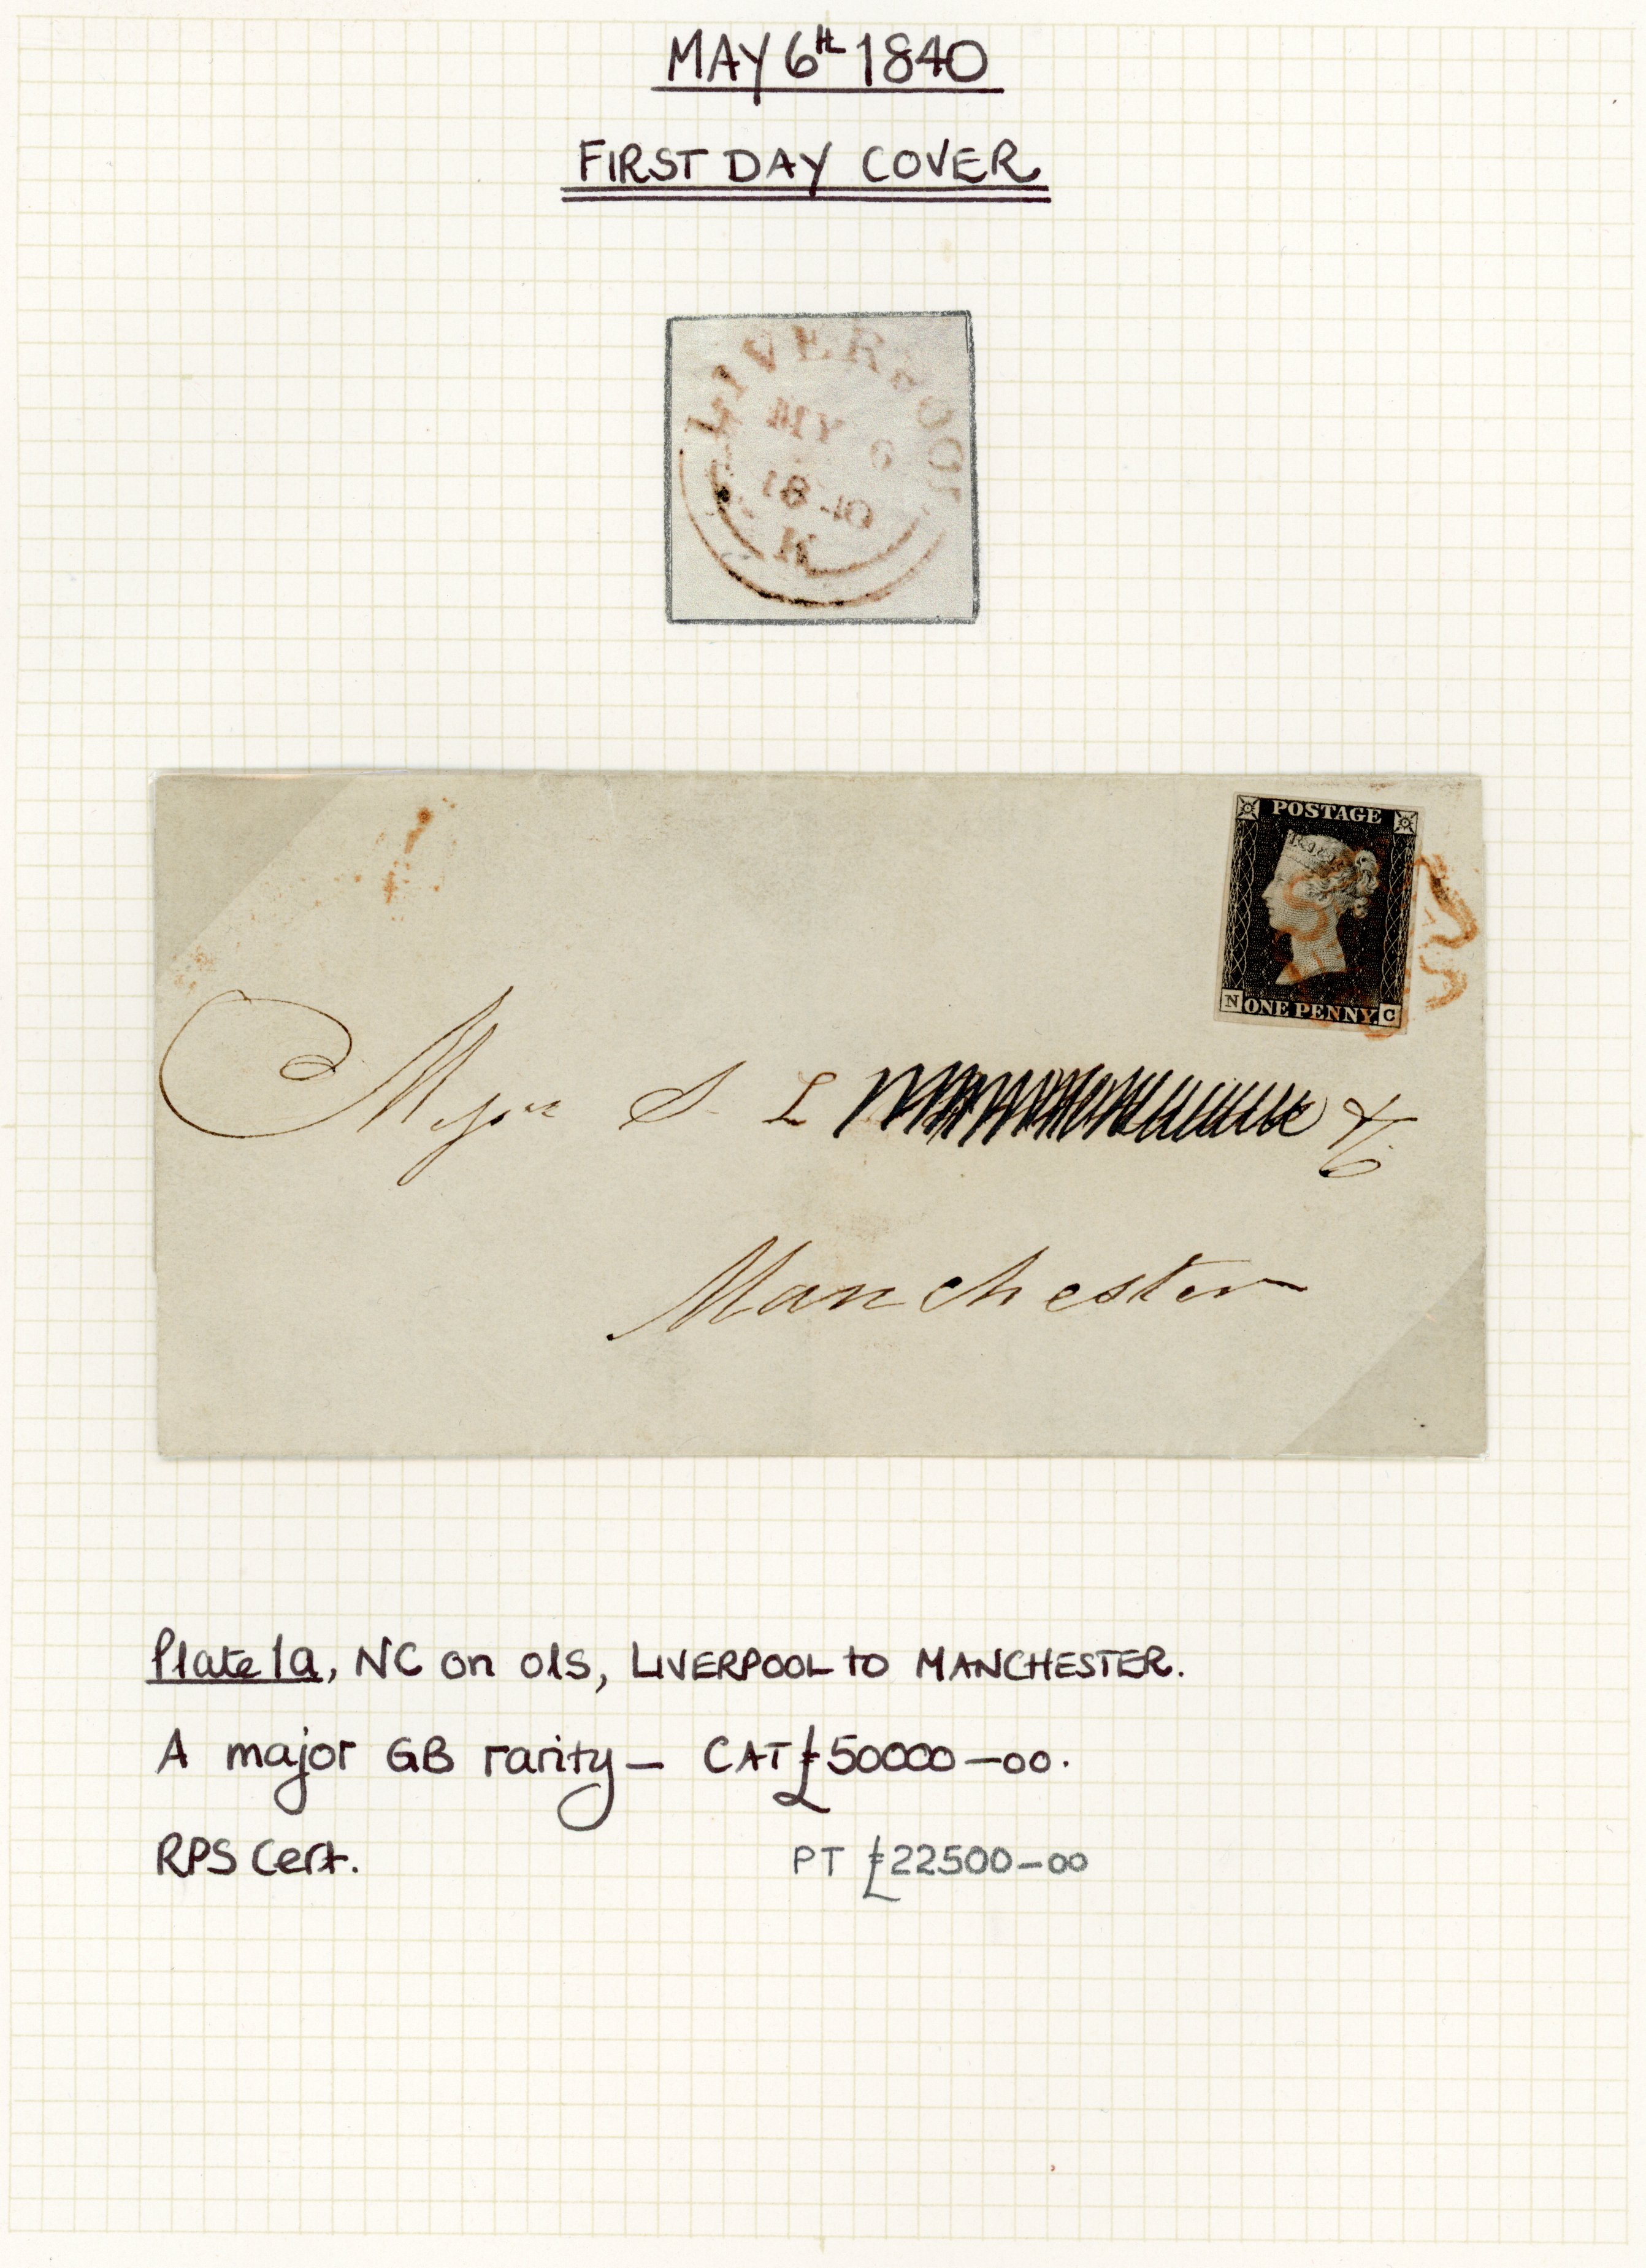 MAY 6th 1840
FIRST DAY COVER
LIVERPOOL
MY 6
1840
POSTAGE
N ONE PENNY. C
S. L
Manchester
Plate 1a, NC on ols, LIVERPOOL to MANCHESTER.
A major GB rarity – CAT £50000–00.
RPS Cert. PT £22500–00